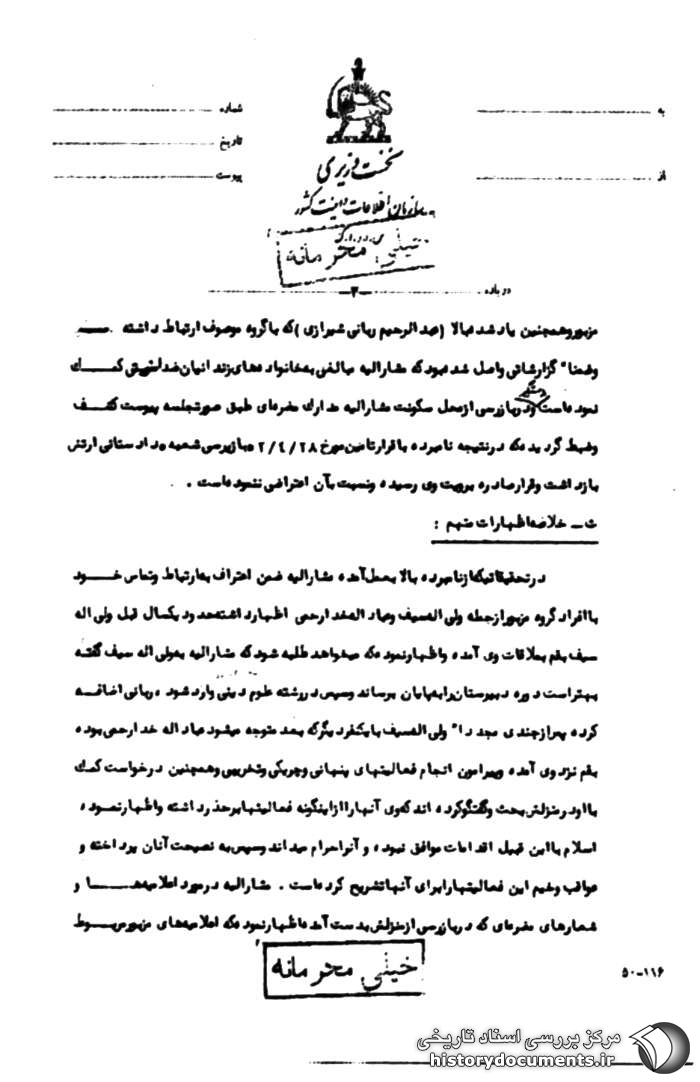 به
شماره
تاریخ
از
پیوست
نخست وزیری
سازمان اطلاعات و امنیت کشور
خیلی محرمانه
درباره
ـ۲ـ
مزبور و همچنین یاد شده بالا (عبدالرحیم ربانی شیرازی) که با گروه موصوف ارتباط داشته
وضمنا" گزارشاتی واصل شده بود که مشارالیه مبالغی به خانواده های زندانیان ضد امنیتی کمک
نموده است و در بازرسی از محل سکونت مشارالیه مدارک مضره ای طبق صورتجلسه پیوست کشف
وضبط گردیده که در نتیجه نامبرده با قرار تامین مورخ ۲/۴/۲۸ بازپرسی شعبه دادستانی ارتش
بازداشت و قرار صادره برویت وی رسیده و نسبت بآن اعتراضی ننموده است .
ث ـ خلاصه اظهارات متهم :
در تحقیقاتیکه از نامبرده بالا بعمل آمده مشارالیه ضمن اعتراف به ارتباط وتماس خود
با افراد گروه مزبور از جمله ولی اله سیف و عباد اله خدارحمی اظهار داشته حدود یکسال قبل ولی اله
سیف بقم بملاقات وی آمده واظهار نموده که میخواهد طلبه شود که مشارالیه به ولی اله سیف گفته
بهتر است دوره دبیرستان را به پایان برساند وسپس در رشته علوم دینی وارد شود ، ربانی اضافه
کرده پس از چندی مجددا" ولی اله سیف با یکنفر دیگر که بعد متوجه میشود عباد اله خدارحمی بوده
بقم نزد وی آمده وپیرامون انجام فعالیتهای پنهانی وچریکی وتخریبی وهمچنین درخواست کمک
با او در منزلش بحث وگفتگو کرده اند که وی آنها را از اینگونه فعالیتها برحذر داشته واظهار نموده
اسلام با این قبیل اقدامات موافق نبوده و آنرا حرام میداند وسپس به نصیحت آنان پرداخته و
عواقب وخیم این فعالیتها را برای آنها تشریح کرده است . مشارالیه در مورد اعلامیه ها و
شعارهای مضره ای که در بازرسی از منزلش بدست آمده اظهار نموده که اعلامیه های مزبور مربوط
خیلی محرمانه
۵۰-۱۱۶
مرکز بررسی اسناد تاریخی
historydocuments.ir